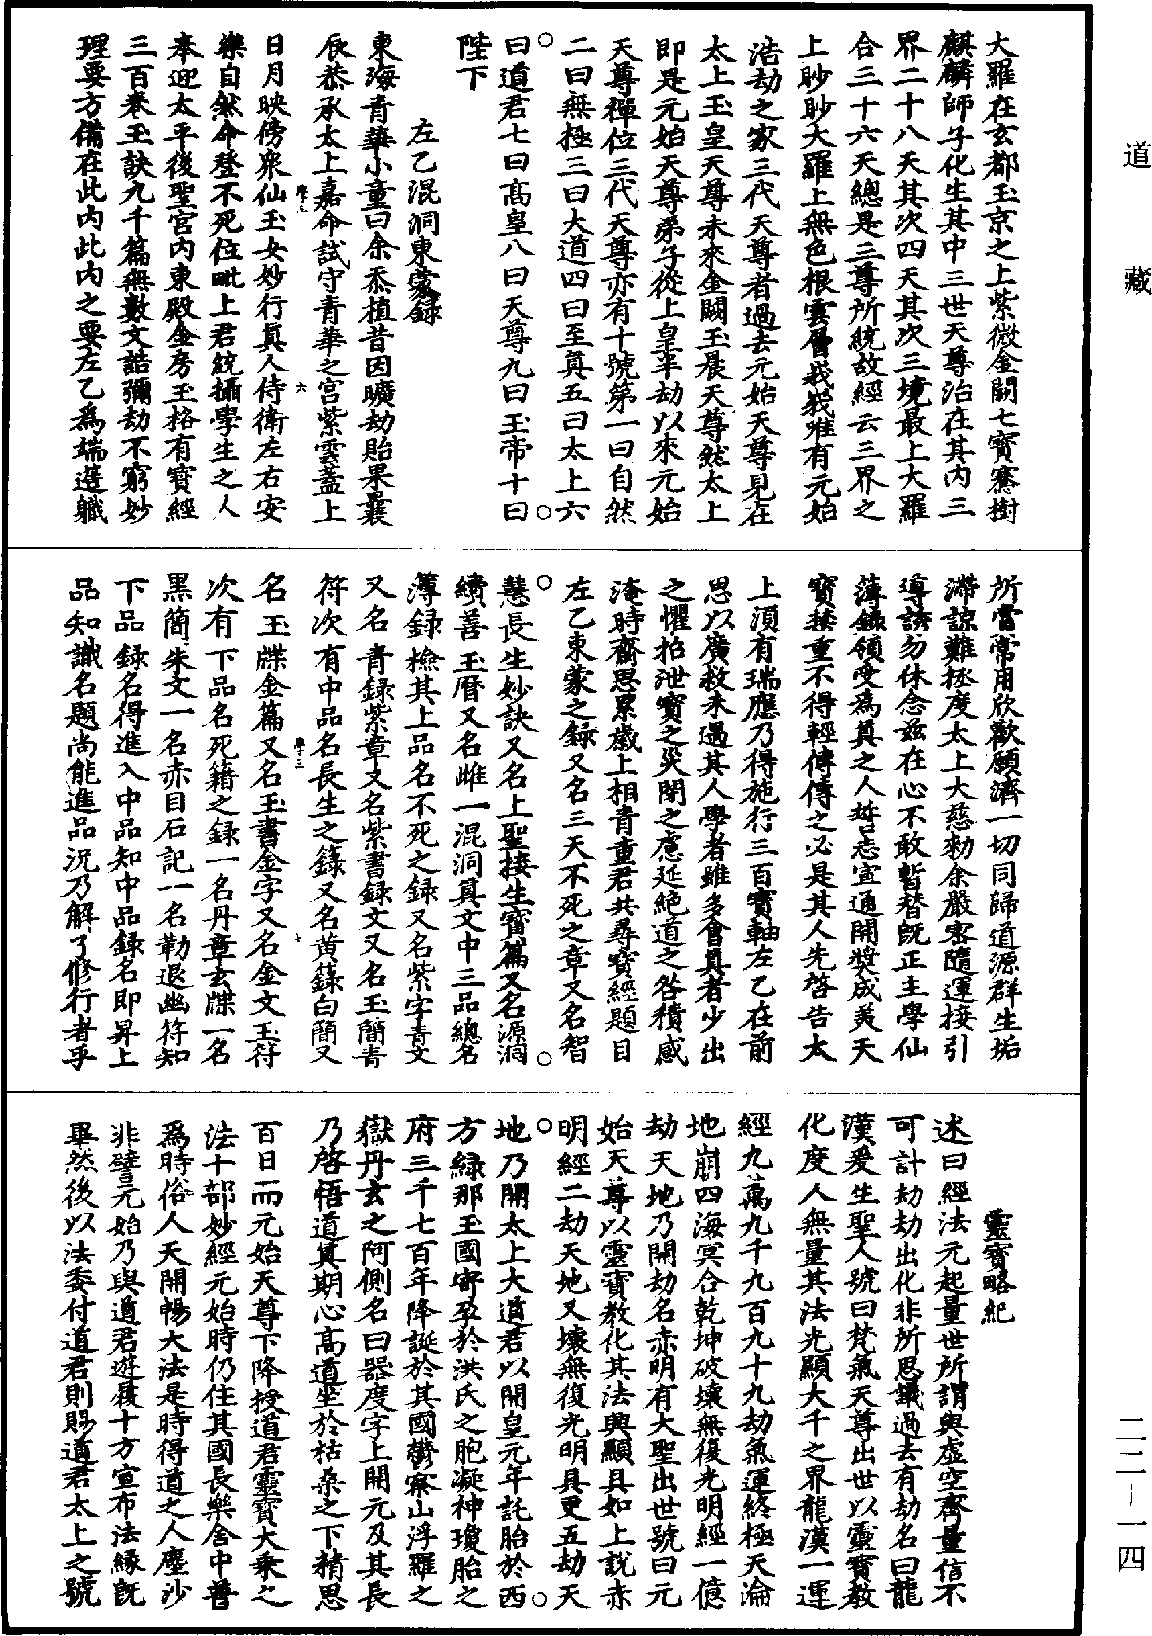 道藏
二二-一四
大羅在玄都玉京之上紫微金闕七寶騫樹
麒麟師子化生其中三世天尊治在其內三
界二十八天其次四天其次三境最上大羅
合三十六天總是三尊所統故經云三界之
上眇眇大羅上無色根雲層峩峩唯有元始
浩劫之家三代天尊者過去元始天尊見在
太上玉皇天尊未來金闕玉晨天尊然太上
即是元始天尊弟子從上皇半劫以來元始
天尊禪位三代天尊亦有十號第一曰自然
二曰無極三曰大道四曰至真五曰太上六
曰道君七曰高皇八曰天尊九曰玉帝十曰
陛下
左乙混洞東蒙録
東海青華小童曰余忝植昔因曠劫貽果曩
辰恭承太上嘉命試守青華之宮紫雲蓋上
日月映傍衆仙玉女妙行真人侍衛左右安
樂自然命登不死位毗上君統攝學生之人
奉迎太平後聖宮內東殿金房玉格有寶經
三百卷玉訣九千篇無數文誥彌劫不窮妙
理要方備在此內此內之要左乙爲端選職
所當常用欣歡願濟一切同歸道源群生垢
滯諒難拯度太上大慈勑余嚴密隨運接引
導誘勿休念兹在心不敢暫替既正主學仙
薄録領受爲真之人哲志宣通開奬成美天
寶禁重不得輕傳傳之必是其人先啓告太
上須有瑞應乃得施行三百寶軸左乙在前
思以廣救未遇其人學者雖多會真者少出
之懼招泄寶之災閉之慮延絕道之咎積感
淹時齋思累歲上相青童君共尋寶經題目
左乙東蒙之録又名三天不死之章又名智
慧長生妙訣又名上聖接生寶篇又名源洞
續善玉曆又名雌一混洞真文中三品總名
薄録檢其上品名不死之録又名紫字青文
又名青録紫章又名紫書録文又名玉簡青
符次有中品名長生之籙又名黃籙白簡又
名玉牒金篇又名玉書金字又名金文玉符
次有下品名死籍之録一名丹章玄牒一名
黑簡朱文一名赤目石記一名勒退幽符知
下品録名得進入中品知中品録名即昇上
品知識名題尚能進品況乃解了修行者乎
靈寶略紀
述曰經法元起量世所謂與虛空齊量信不
可計劫劫出化非所思議過去有劫名曰龍
漢爰生聖人號曰梵氣天尊出世以靈寶教
化度人無量其法光顯大千之界龍漢一運
經九萬九千九百九十九劫氣運終極天淪
地崩四海冥合乾坤破壞無復光明經一億
劫天地乃開劫名赤明有大聖出世號曰元
始天尊以靈寶教化其法興顯具如上說赤
明經二劫天地又壞無復光明具更五劫天
地乃開太上大道君以開皇元年託胎於西
方緑那玉國寄孕於洪氏之胞凝神瓊胎之
府三千七百年降誕於其國鬱察山浮羅之
嶽丹玄之阿側名曰器度字上開元及其長
乃啓悟道真期心高道坐於枯桑之下精思
百日而元始天尊下降授道君靈寶大乘之
法十部妙經元始時仍住其國長樂舍中普
爲時俗人天開暢大法是時得道之人塵沙
非譬元始乃與道君遊履十方宣布法緣既
畢然後以法委付道君則賜道君太上之號